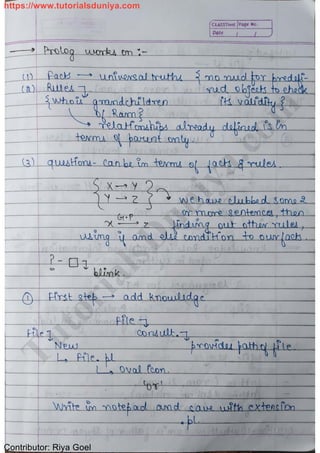 https://www.tutorialsduniya.com
Classmate Page No.
Date / /
→ Prolog works on :-
(1) Facts → universal truths { no need for predefi-
(2) Rules ned objects to check
{ whois grandchildren its validity }
of Ram }
→ relationships already defined is in
terms of parent only.
(3) questions- can be in terms of facts & rules.
{ X → Y }
{ Y → Z } we have clubbed some 2
or more sentences, then
X G.P → Z finding out other rules,
using if and else condition to our facts.
? - □
blink.
① First step → add knowledge
File
File consult.
New provides path of file
↳ File. pl
↳ Oval icon.
'or'
Write in notepad and save with extension
.pl.
TutorialsDuniya.com
Contributor: Riya Goel